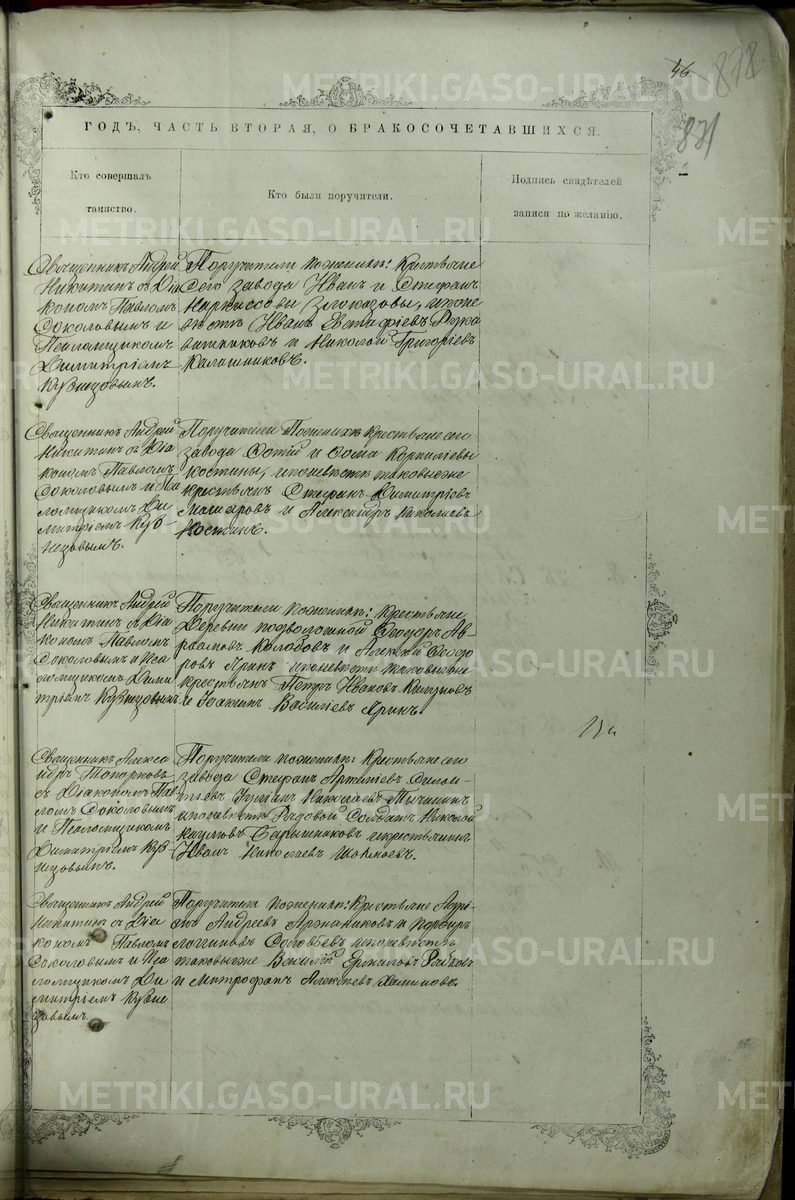 46
878
871
ГОДЪ, ЧАСТЬ ВТОРАЯ, О БРАКОСОЧЕТАВШИХСЯ.
Кто совершалъ
таинство.
Кто были поручители.
Подпись свидѣтелей
записи по желанію.
Священникъ Андрей
Никитинъ съ Діа
кономъ Павломъ
Соколовымъ и
Псаломщикомъ
Димитріемъ
Кузнецовымъ.
Поручители по женихѣ: Крестьяне
сего завода Иванъ и Стефанъ
Наркиссовы Злоказовы, и по не
вѣстѣ Иванъ Евстафіевъ
и Николай Григоріевъ
Калашниковъ.
Священникъ Андрей
Никитинъ съ Діа
кономъ Павломъ
Соколовымъ и Пса
ломщикомъ Ди
митріемъ Куз-
нецовымъ.
Поручители По женихѣ Крестьяне сего
завода Фотій и Фома Корниліевы
Костины, и по невѣстѣ таковые же
крестьяне Стефанъ Димитріевъ
и Александръ Николаевъ
Костинъ.
Священникъ Андрей
Никитинъ съ Діа
кономъ Павломъ
Соколовымъ и Пса
ломщикомъ Дими
тріемъ Кузнецовымъ
Поручители по женихѣ: Крестьяне
Деревни Подволошной Ѳеодоръ
Колобовъ и Алексѣй Ѳеодо
ровъ Яринъ и по невѣстѣ таковые же
крестьяне Петръ Ивановъ
и Іоакимъ Василіевъ Яринъ.
Священникъ Алекса
ндръ Топорковъ
съ Діакономъ Пав
ломъ Соколовымъ
и Псаломщикомъ
Димитріемъ Куз
нецовымъ.
Поручители по женихѣ: Крестьяне сего
завода Стефанъ Артеміевъ
Николаевъ
и по невѣстѣ Рядовой Солдатъ Николай
Наумовъ Барышниковъ и крестьянинъ
Иванъ Николаевъ
Священникъ Андрей
Никитинъ съ Діа
кономъ Павломъ
Соколовымъ и Пса
ломщикомъ Ди
митріемъ Кузне
цовымъ.
Поручители по женихѣ: Крестьяне
Андреевъ Аржанниковъ и
Логиновъ Соловьевъ и по невѣстѣ
таковые же Василій Ермиловъ
и Митрофанъ Алексѣевъ
METRIKI.GASO-URAL.RU